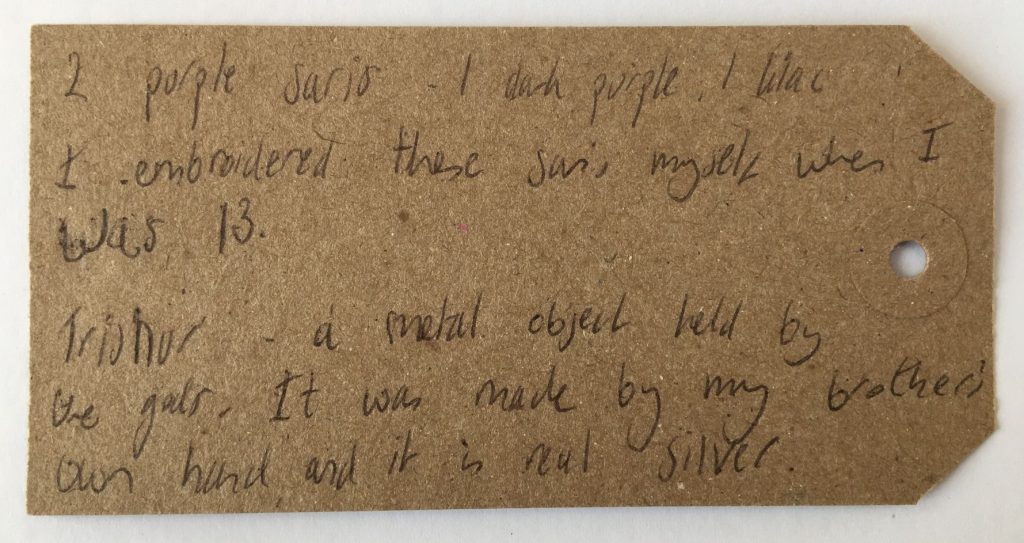 2 purple saris - 1 dark purple, 1 lilac
I embroidered these saris myself when I
was 13.
- a metal object held by
the gods. It was made by my brother's
own hand and it is real silver.